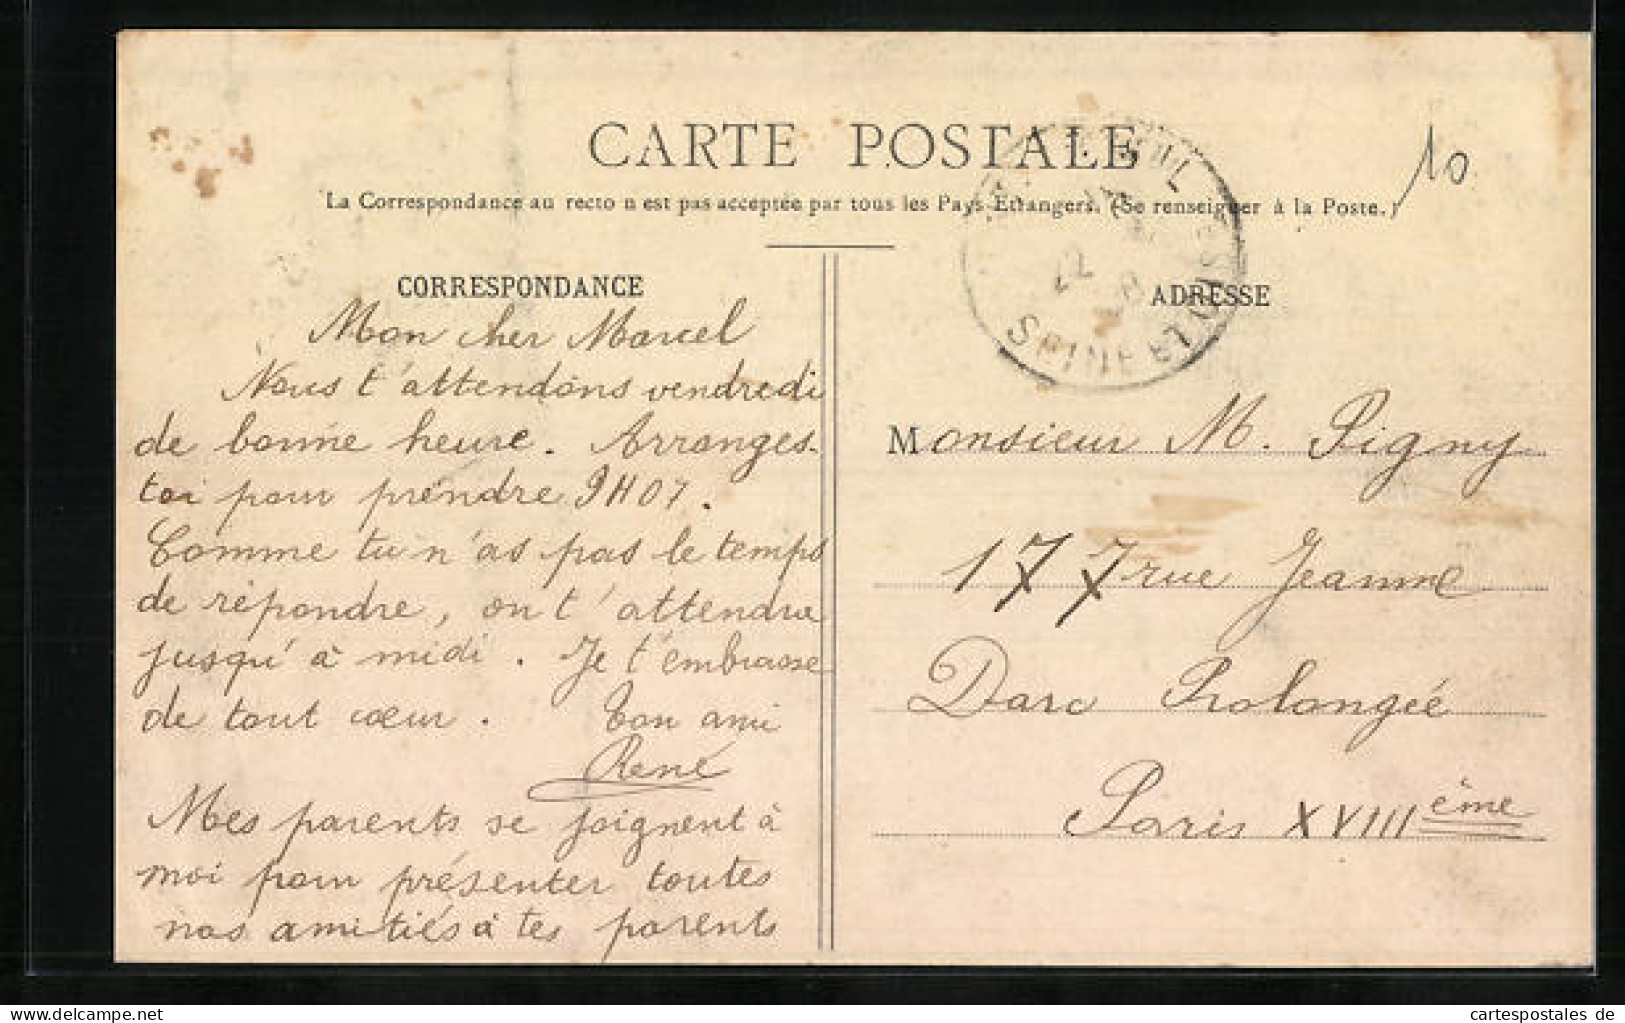 CARTE POSTALE
10
La Correspondance au recto n est pas acceptée par tous les Pays Etrangers. (Se renseigner à la Poste.)
CORRESPONDANCE
Mon cher Marcel
Nous t'attendons vendredi
de bonne heure. Arranges-
toi pour prendre 9H07.
Comme tu n'as pas le temps
de répondre, on t'attendra
jusqu'à midi. Je t'embrasse
de tout cœur. Ton ami
René
Mes parents se joignent à
moi pour présenter toutes
nos amitiés à tes parents
22
SEINE ET OISE
ADRESSE
Monsieur M. Pigny
177 rue Jeanne
Darc Prolongée
Paris XVIII ème
My Postcards
cartespostales de